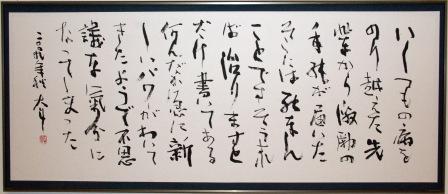 いくつもの病を
のり越えた先
輩から激励の
手紙が届いた
そこには飛ません
ことですそうすれ
ば治りますと
だけ書いてある
何んだか急に新
しいパワーがわいて
きたようで不思
議な気分に
なってしまった